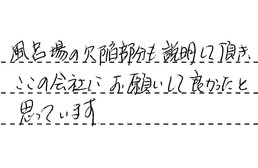 風呂場の欠陥部分も説明して頂き、
ここの会社に お願いして良かったと
思っています